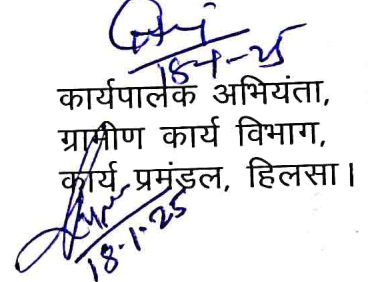 18-1-25
कार्यपालक अभियंता,
ग्रामीण कार्य विभाग,
कार्य प्रमंडल, हिलसा।
18.1.25